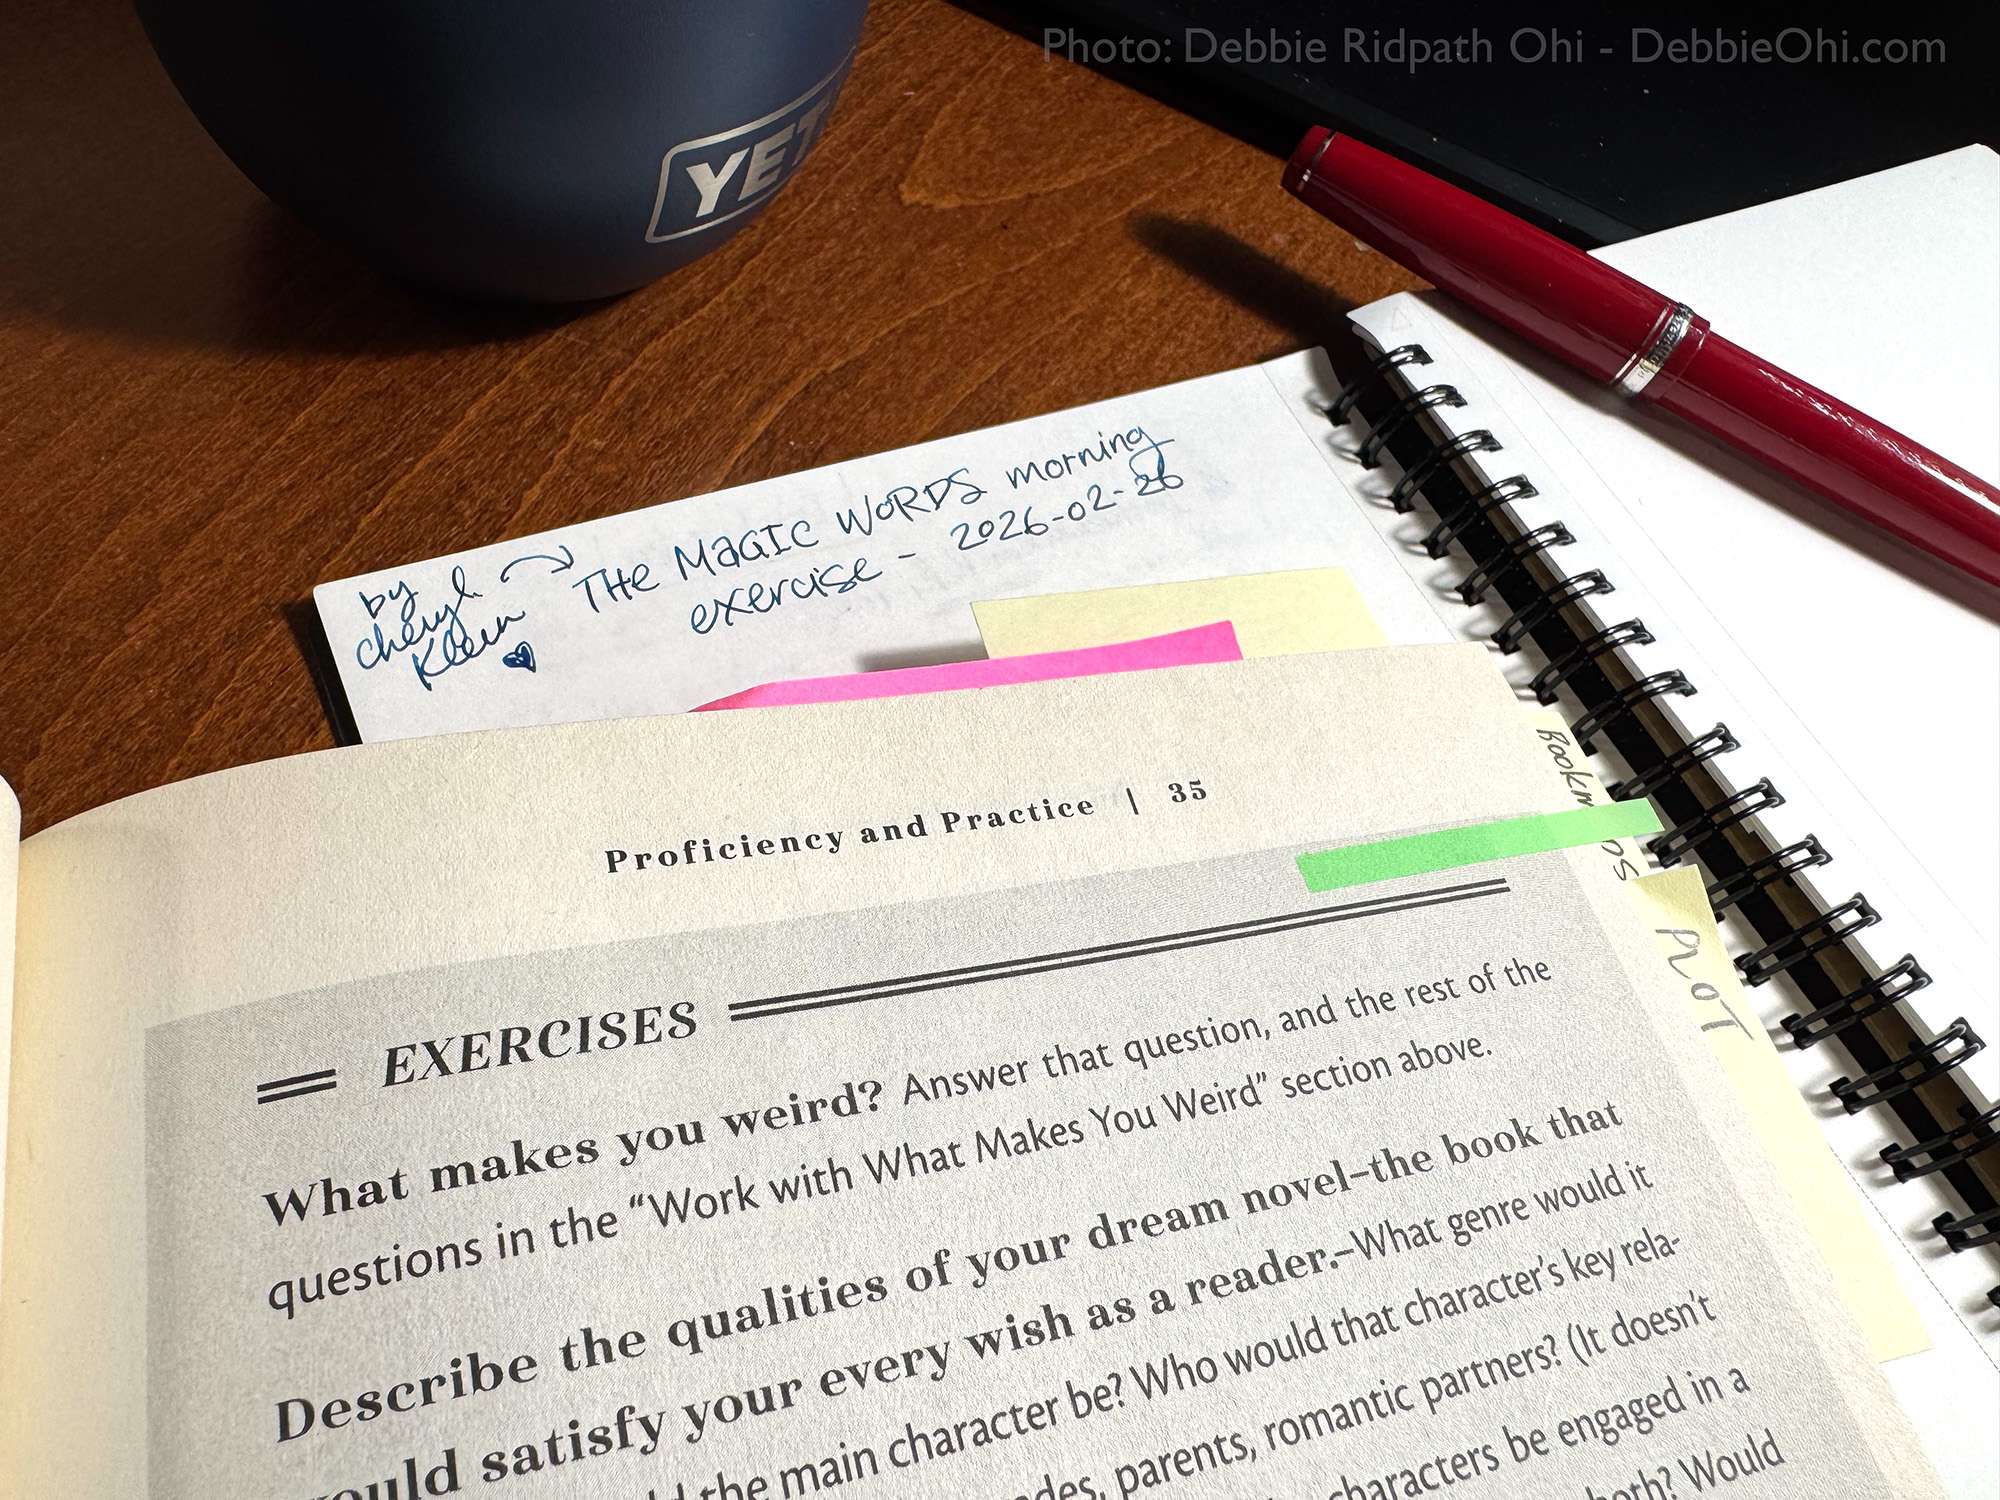 Photo: Debbie Ridpath Ohi - DebbieOhi.com
YETI
by
cheryl
Klein
THE MAGIC WORDS morning
exercise - 2026-02-26
Proficiency and Practice | 35
PLOT
EXERCISES
What makes you weird? Answer that question, and the rest of the
questions in the “Work with What Makes You Weird” section above.
Describe the qualities of your dream novel–the book that
would satisfy your every wish as a reader.–What genre would it
the main character be? Who would that character’s key rela-
parents, romantic partners? (It doesn’t
characters be engaged in a
both? Would